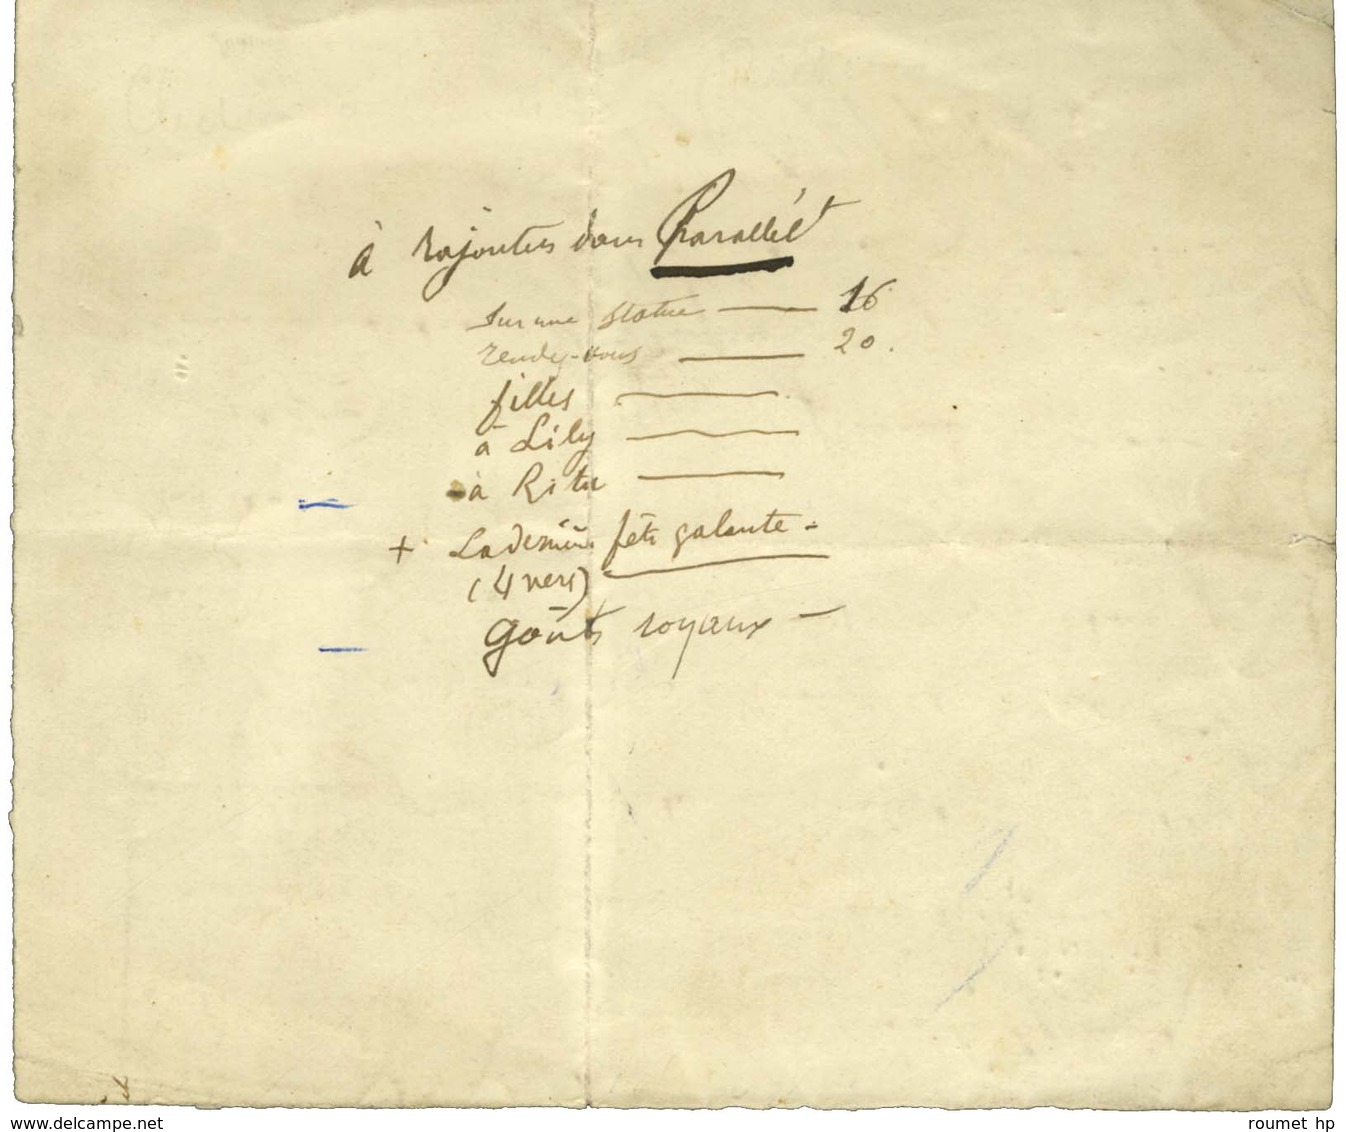 à rajouter dans Parallèlt
Sur une statue — 16
rendez-vous — 20.
filles —
à Lily —
à Rita —
+ La dernière fête galante -
(4 vers)
Goûts royaux —
www.delcampe.net
roumet hp